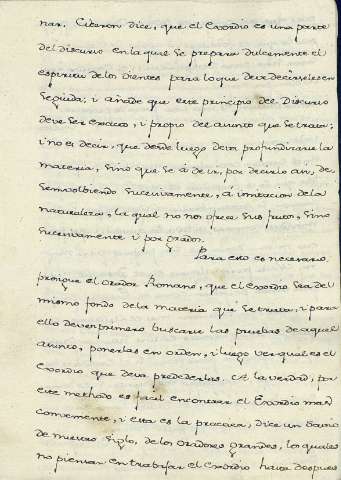 nar. Ciceron dice, que el Exordio es una parte
del discurso en la qual se prepara dulcemente el
espiritu de los oientes para lo que deve decirseles en
seguida; i añade que este principio del Discurso
deve ser exacto, i propio del asunto que se trata;
i no es decir, que desde luego deva profundizarse la
materia, sino que se á de ir, por decirlo asi, de-
semvolbiendo sucesivamente, á imitacion de la
naturaleza, la qual no nos ofrece sus frutos, sino
sucesivamente i por grados.
Para esto es necesario,
prosigue el Orador Romano, que el Exordio sea del
mismo fondo de la materia que se trata, i para
ello deve primero buscarse las pruebas de aquel
asunto, ponerlas en orden, i luego ver qual es el
Exordio que deva precederlas. A la verdad, por
este methodo es facil encontrar el Exordio mas
conveniente, i esta es la practica, dice un Savio
de nuestro siglo, de los oradores grandes, los quales
no piensan en trabajar el Exordio hasta despues